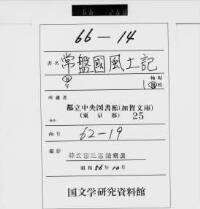 66-14
書名
常盤國風土記
所蔵者
都立中央図書館(加賀文庫)
(東京都) 25
函号
62-19
撮影
昭和56年10月
国文学研究資料館